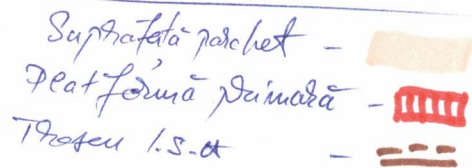 Suprafață parchet -
Platformă primară -
Traseu I.S.U -